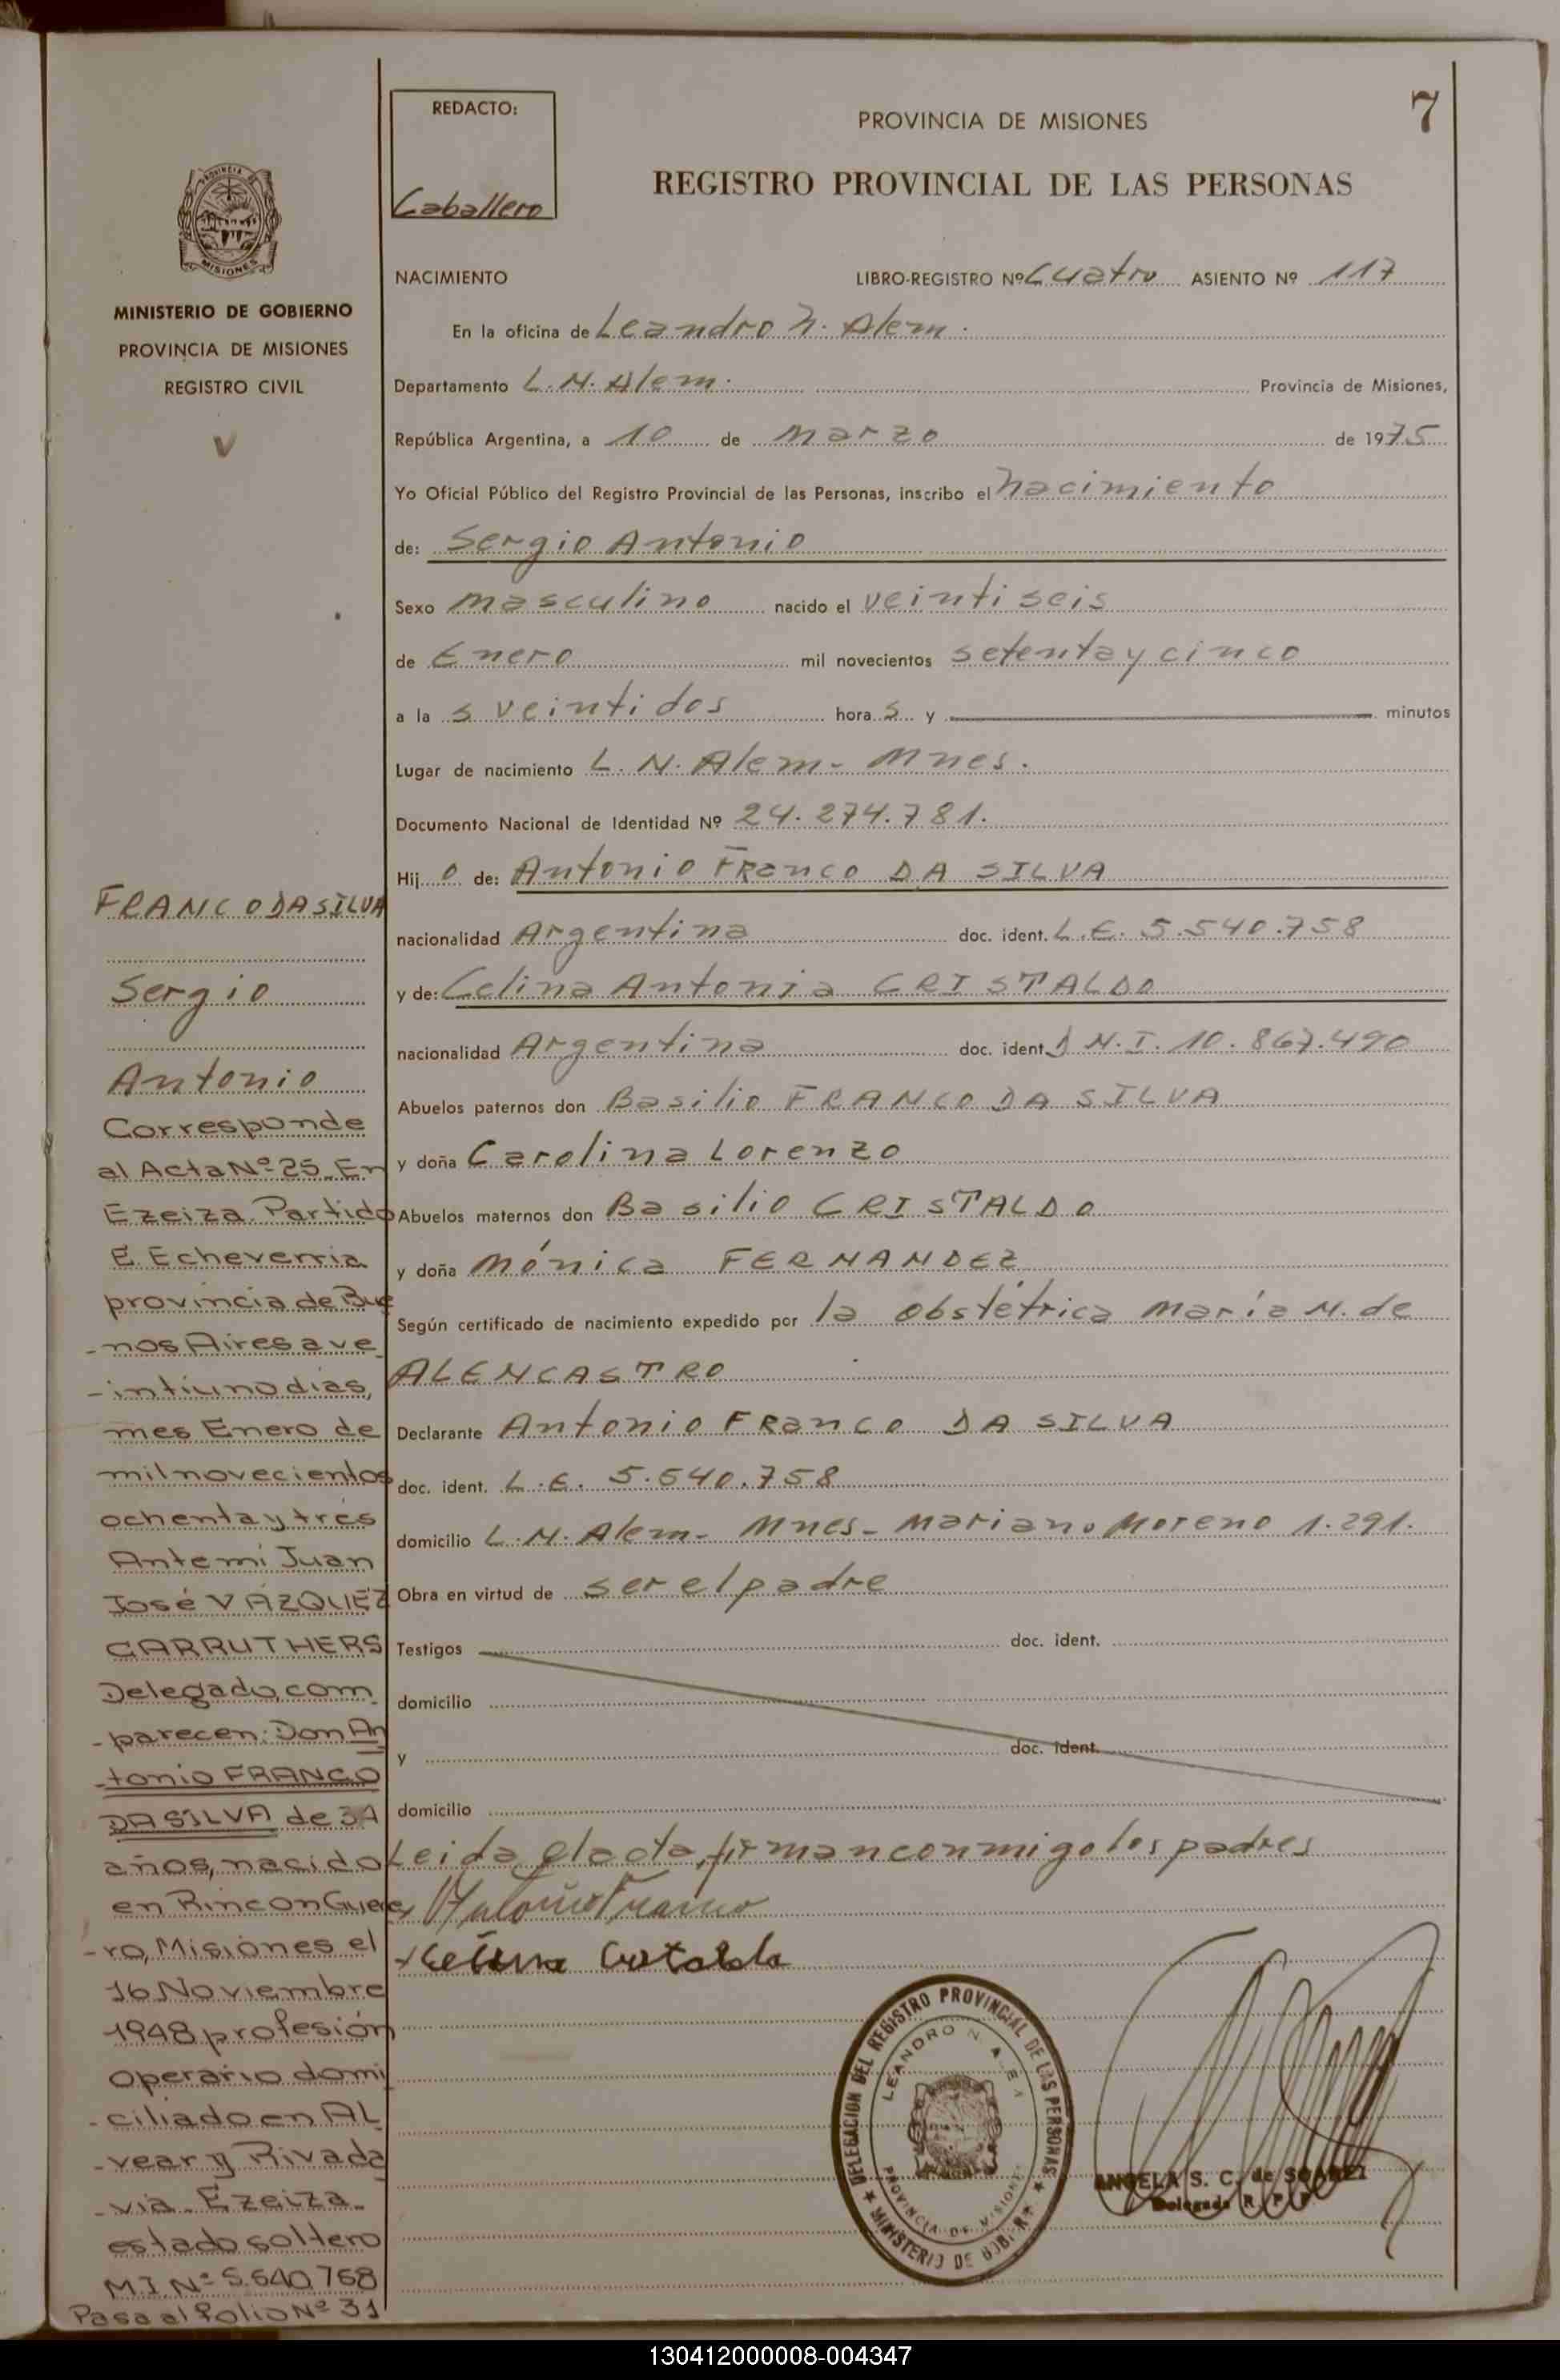 7
REDACTO:
Caballero
PROVINCIA DE MISIONES
REGISTRO PROVINCIAL DE LAS PERSONAS
PROVINCIA DE
MISIONES
MINISTERIO DE GOBIERNO
PROVINCIA DE MISIONES
REGISTRO CIVIL
V
NACIMIENTO LIBRO-REGISTRO Nº Cuatro ASIENTO Nº 117
En la oficina de Leandro N. Alem.
Departamento L. N. Alem. Provincia de Misiones,
República Argentina, a 10 de Marzo de 1975
Yo Oficial Público del Registro Provincial de las Personas, inscribo el nacimiento
de: Sergio Antonio
Sexo masculino nacido el veintiseis
de Enero mil novecientos setenta y cinco
a la s veintidos hora s y minutos
Lugar de nacimiento L. N. Alem - Mnes.
Documento Nacional de Identidad Nº 24.274.781.
Hij o de: Antonio Franco DA SILVA
nacionalidad Argentina doc. ident. L.E. 5.540.758
y de: Celina Antonia CRISTALDO
nacionalidad Argentina doc. ident. D N.I. 10.867.490
Abuelos paternos don Basilio FRANCO DA SILVA
y doña Carolina Lorenzo
Abuelos maternos don Basilio CRISTALDO
y doña Mónica FERNANDEZ
Según certificado de nacimiento expedido por la obstétrica María M. de
ALENCASTRO
Declarante Antonio Franco DA SILVA
doc. ident. L.E. 5.640.758
domicilio L. N. Alem - Mnes - Mariano Moreno 1.291.
Obra en virtud de ser el padre
Testigos doc. ident.
domicilio
y doc. ident.
domicilio
Leida el acta, firman conmigo los padres
Antonio Franco
Celina Cristaldo
DELEGACION DEL REGISTRO PROVINCIAL DE LAS PERSONAS
LEANDRO N. ALEM
PROVINCIA DE MISIONES
MINISTERIO DE GOBI
ANGELA S. C. de SUAREZ
Delegada R. P. P.
FRANCO DA SILVA
Sergio
Antonio
Corresponde
al Acta Nº 25 En
Ezeiza Partido
E. Echeverria
provincia de Bue
-nos Aires a ve
-intiuno dias,
mes Enero de
mil novecientos
ochenta y tres
Antemi Juan
José VÁZQUEZ
CARRUTHERS
Delegado, com
-parecen: Don An
-tonio FRANCO
DA SILVA de 34
años, nacido
en Rincon Guere
-ro, Misiones el
16 Noviembre
1948 profesión
Operario domi
-ciliado en AL
-vear y Rivada
-via - Ezeiza -
estado soltero
M.I. Nº 5.640.768
Pasa al folio Nº 31
130412000008-004347